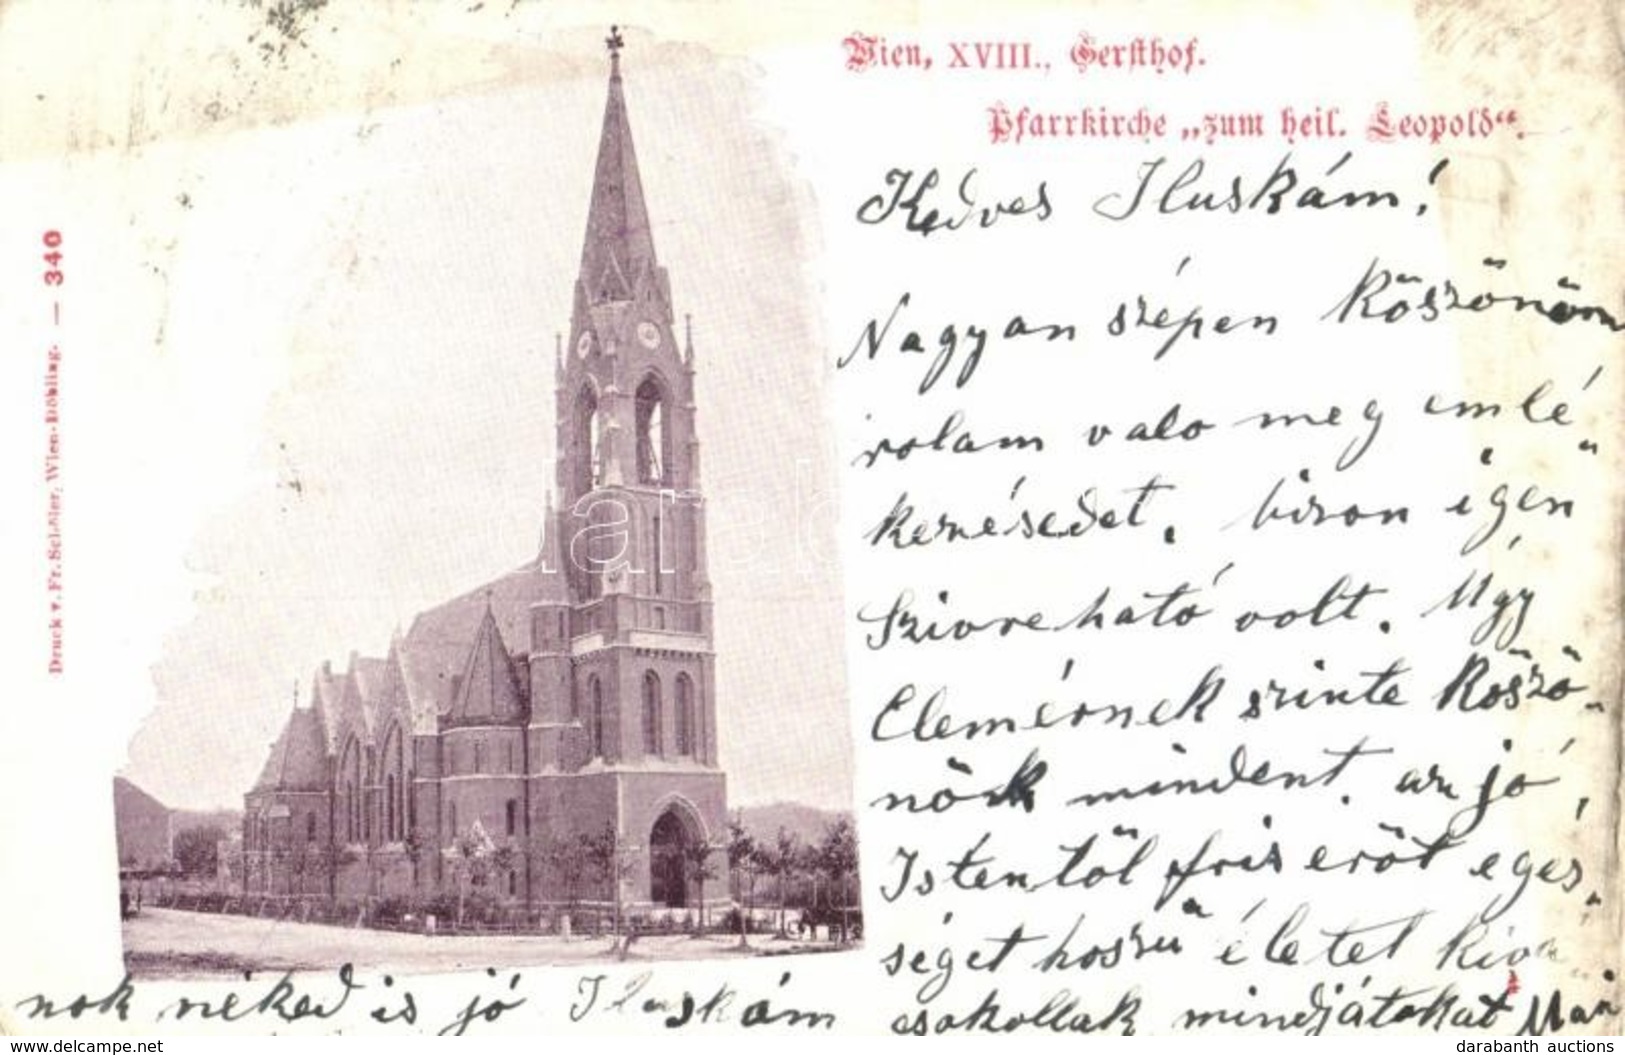 Wien, XVIII., Gersthof.
Pfarrkirche „zum heil. Leopold“.
Druck v. Fr. Seidler, Wien-Döbling. — 340
Kedves Iluskám!
Nagyan szépen köszönöm
rolam valo meg emlé„
kezésedet. bizon igen
Szivreható volt. Ugy
Elemérnek szinte köszö„
nök mindent. az jó
Istentöl friss eröt egés„
séget hoszu életet kivá
nok néked is jó Iluskám
csokollak mindjátokat Mari
darabanth
www.delcampe.net
darabanth auctions